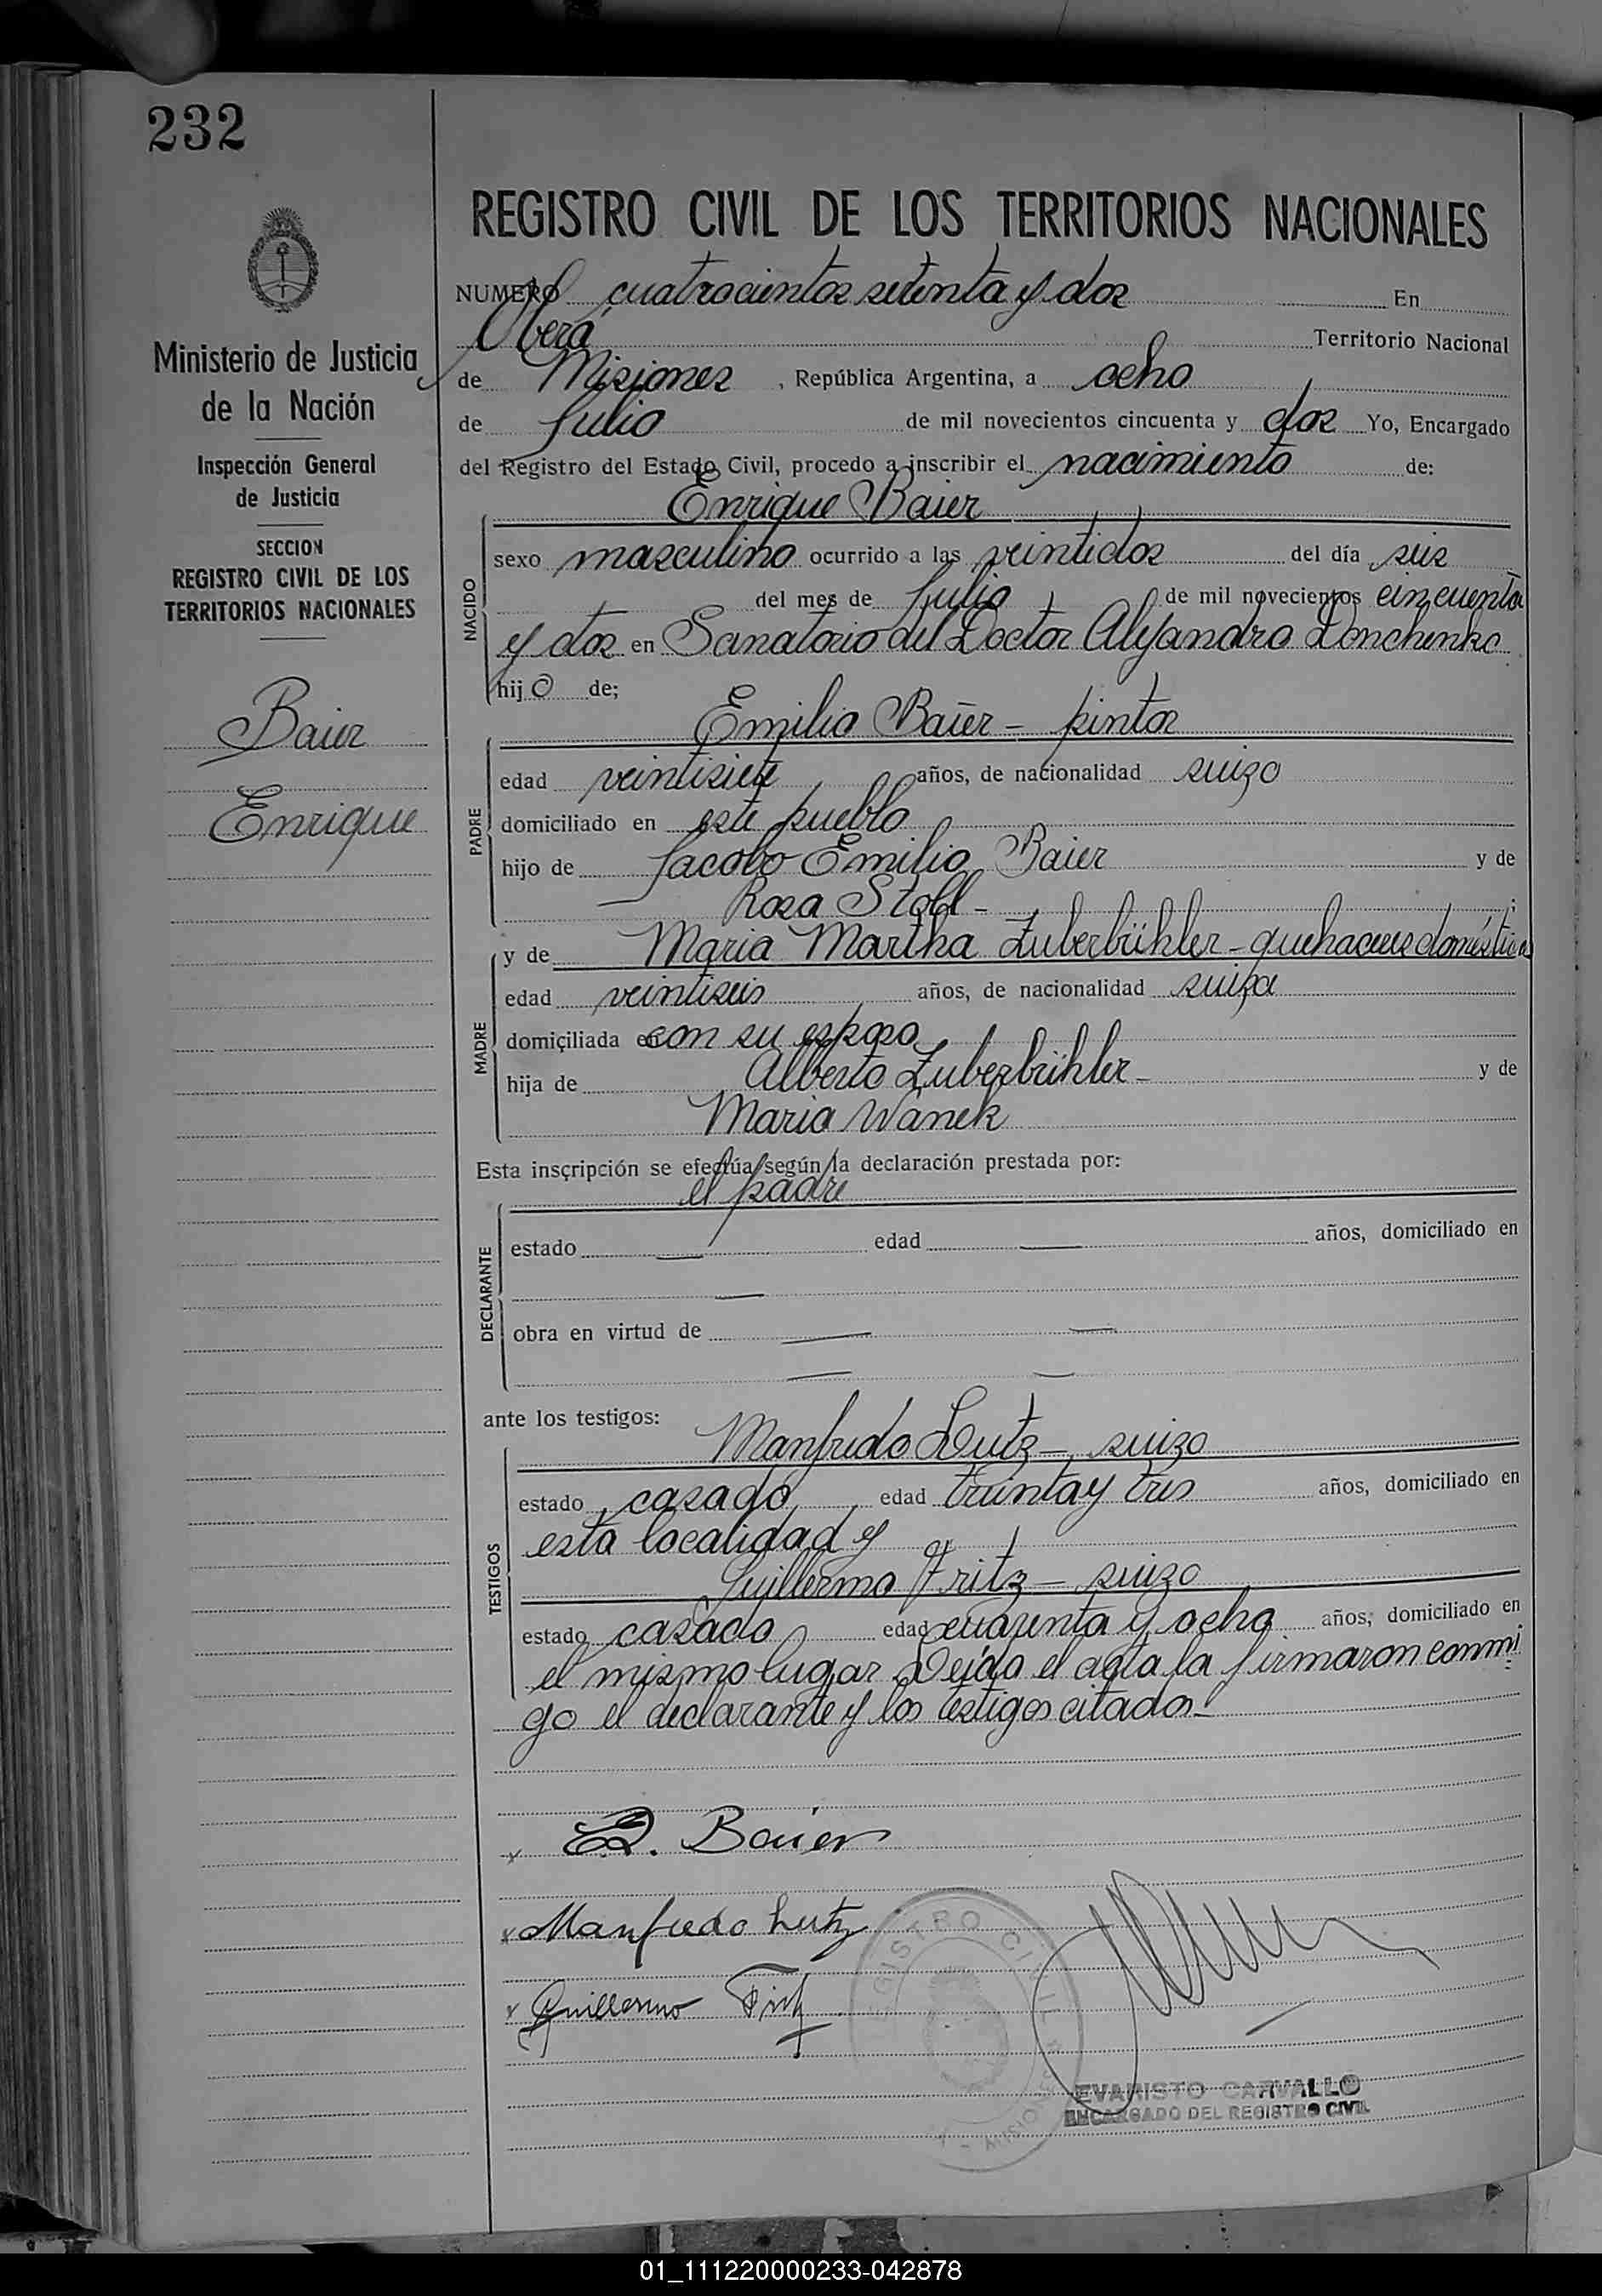 232
REGISTRO CIVIL DE LOS TERRITORIOS NACIONALES
Ministerio de Justicia
de la Nación
Inspección General
de Justicia
SECCION
REGISTRO CIVIL DE LOS
TERRITORIOS NACIONALES
Baier
Enrique
NUMERO cuatrocientos setenta y dos En
Oberá Territorio Nacional
de Misiones, República Argentina, a ocho
de Julio de mil novecientos cincuenta y dos Yo, Encargado
del Registro del Estado Civil, procedo a inscribir el nacimiento de:
Enrique Baier
NACIDO
sexo masculino ocurrido a las veintidos del día seis
del mes de Julio de mil novecientos cincuenta
y dos en Sanatorio del Doctor Alejandro Donchenko
hijo de;
Emilio Baier - pintor
PADRE
edad veintisiete años, de nacionalidad suizo
domiciliado en este pueblo
hijo de Jacobo Emilio Baier y de
Rosa Stoll - ;
y de Maria Martha Zuberbühler - quehaceres domésticos
MADRE
edad veintiseis años, de nacionalidad suiza
domiciliada en con su esposo
hija de Alberto Zuberbühler - y de
Maria Wanek
Esta inscripción se efectúa según la declaración prestada por:
el padre
DECLARANTE
estado — edad — años, domiciliado en
—
obra en virtud de — —
— —
ante los testigos:
Manfredo Lutz - suizo
TESTIGOS
estado casado edad treinta y tres años, domiciliado en
esta localidad y
Guillermo Fritz - suizo
estado casado edad cuarenta y ocho años, domiciliado en
el mismo lugar. Leída el acta la firmaron conmi
go el declarante y los testigos citados -
x E. Baier
x Manfredo Lutz
x Guillermo Fritz
REGISTRO CIVIL
MISIONES
EVARISTO CARVALLO
ENCARGADO DEL REGISTRO CIVIL
01_111220000233-042878